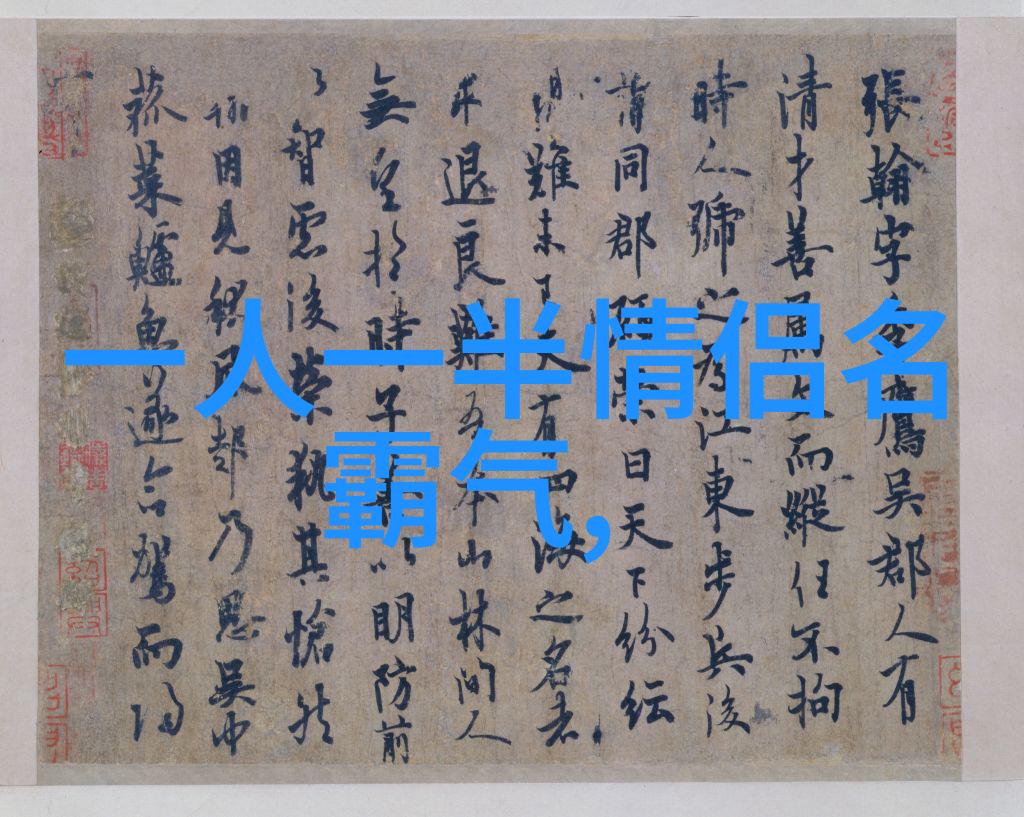 一人一半情侣名
霸气,
張翰字鷹吳郡人有
清才善文而縱任不拘
時人號之為江東步兵後
同郡榮曰天下紛紜
難未夫有四海之名者
退良難吾本山林間人
無望於時子以明防前
智慮後榮執其愴然
因見秋風起乃思吳中
菰菜鱸魚遂命駕而歸